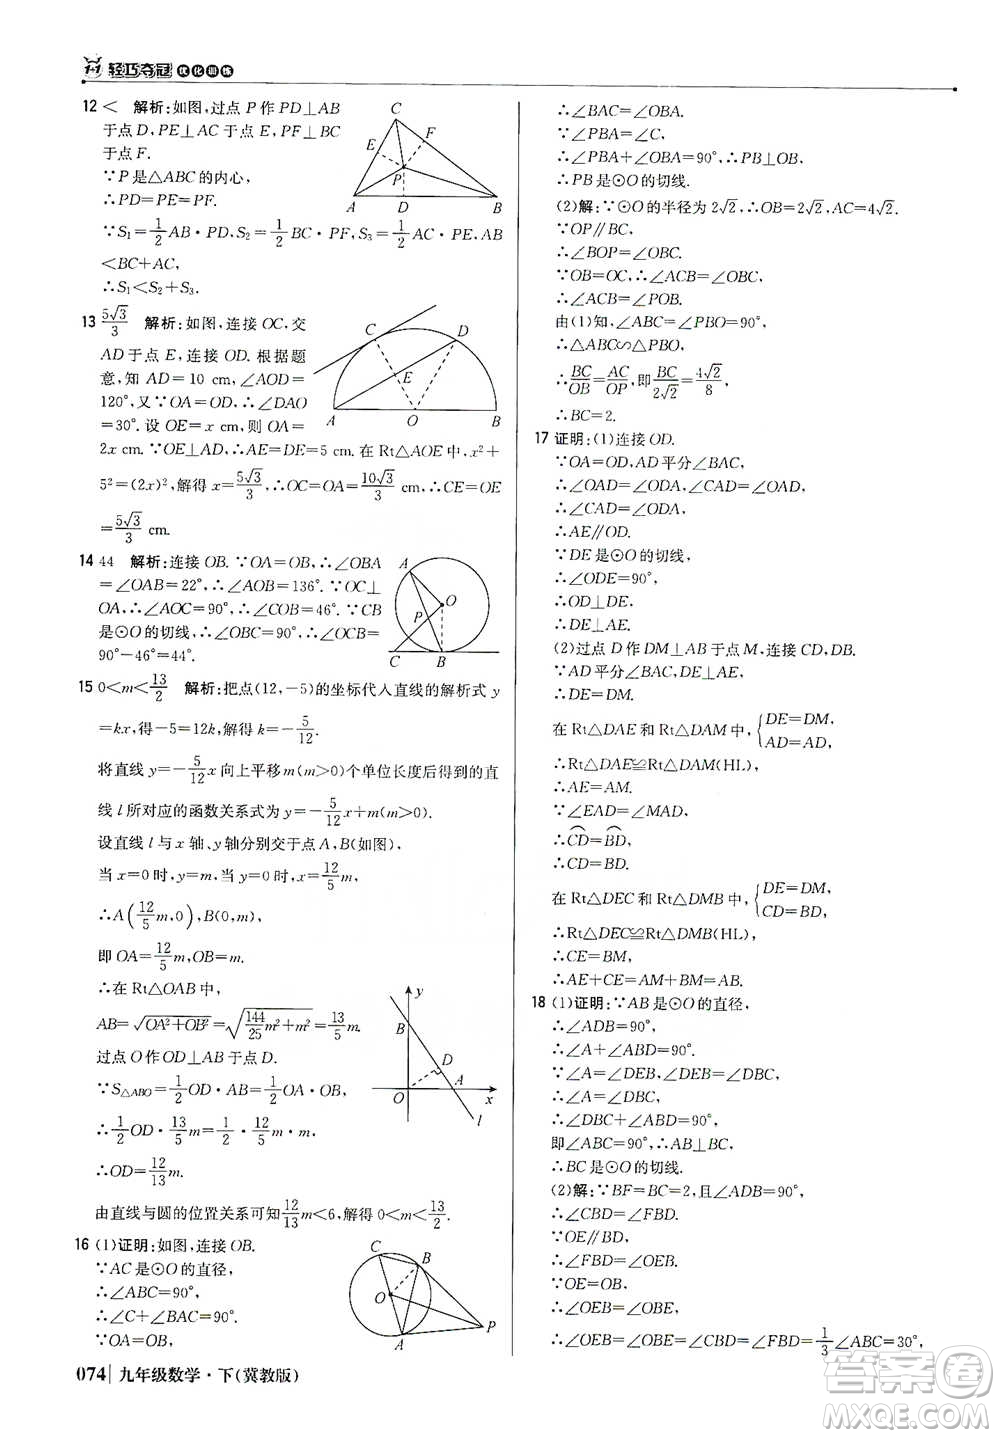 1+1 轻巧夺冠 优化训练
12 < 解析:如图,过点 P 作 PD⊥AB
于点 D,PE⊥AC 于点 E,PF⊥BC
于点 F.
∵P 是△ABC 的内心,
∴PD=PE=PF.
∵S₁=1/2 AB·PD,S₂=1/2 BC·PF,S₃=1/2 AC·PE,AB
<BC+AC,
∴S₁<S₂+S₃.
C
E
F
P
A
D
B
13 5√3/3 解析:如图,连接 OC,交
AD 于点 E,连接 OD. 根据题
意,知 AD=10 cm,∠AOD=
120°,又∵OA=OD,∴∠DAO
=30°. 设 OE=x cm,则 OA=
2x cm. ∵OE⊥AD,∴AE=DE=5 cm. 在 Rt△AOE 中,x²+
5²=(2x)²,解得 x=5√3/3,∴OC=OA=10√3/3 cm,∴CE=OE
=5√3/3 cm.
C
D
E
A
O
B
14 44 解析:连接 OB. ∵OA=OB,∴∠OBA
=∠OAB=22°,∴∠AOB=136°. ∵OC⊥
OA,∴∠AOC=90°,∴∠COB=46°. ∵CB
是⊙O 的切线,∴∠OBC=90°,∴∠OCB=
90°-46°=44°.
A
O
P
C
B
15 0<m<13/2 解析:把点(12,-5)的坐标代入直线的解析式 y
=kx,得-5=12k,解得 k=-5/12.
将直线 y=-5/12 x 向上平移 m(m>0)个单位长度后得到的直
线 l 所对应的函数关系式为 y=-5/12 x+m(m>0).
设直线 l 与 x 轴、y 轴分别交于点 A,B(如图).
当 x=0 时,y=m,当 y=0 时,x=12/5 m,
∴A(12/5 m,0),B(0,m),
即 OA=12/5 m,OB=m.
∴在 Rt△OAB 中,
AB=√(OA²+OB²)=√(144/25 m²+m²)=13/5 m.
过点 O 作 OD⊥AB 于点 D.
∵S△ABO=1/2 OD·AB=1/2 OA·OB,
∴1/2 OD·13/5 m=1/2·12/5 m·m,
∴OD=12/13 m.
由直线与圆的位置关系可知 12/13 m<6,解得 0<m<13/2.
y
B
D
O
A
x
l
16 (1)证明:如图,连接 OB.
∵AC 是⊙O 的直径,
∴∠ABC=90°,
∴∠C+∠BAC=90°.
∵OA=OB,
C
B
O
A
P
∴∠BAC=∠OBA.
∵∠PBA=∠C,
∴∠PBA+∠OBA=90°,∴PB⊥OB,
∴PB 是⊙O 的切线.
(2)解:∵⊙O 的半径为 2√2,∴OB=2√2,AC=4√2.
∵OP∥BC,
∴∠BOP=∠OBC.
∵OB=OC,∴∠ACB=∠OBC,
∴∠ACB=∠POB.
由(1)知,∠ABC=∠PBO=90°,
∴△ABC∽△PBO,
∴BC/OB=AC/OP,即 BC/2√2=4√2/8,
∴BC=2.
17 证明:(1)连接 OD.
∵OA=OD,AD 平分∠BAC,
∴∠OAD=∠ODA,∠CAD=∠OAD,
∴∠CAD=∠ODA,
∴AE∥OD.
∵DE 是⊙O 的切线,
∴∠ODE=90°,
∴OD⊥DE,
∴DE⊥AE.
(2)过点 D 作 DM⊥AB 于点 M,连接 CD,DB.
∵AD 平分∠BAC,DE⊥AE,
∴DE=DM.
在 Rt△DAE 和 Rt△DAM 中,{DE=DM, AD=AD,
∴Rt△DAE≌Rt△DAM(HL),
∴AE=AM.
∵∠EAD=∠MAD,
∴⌒CD=⌒BD,
∴CD=BD.
在 Rt△DEC 和 Rt△DMB 中,{DE=DM, CD=BD,
∴Rt△DEC≌Rt△DMB(HL),
∴CE=BM,
∴AE+CE=AM+BM=AB.
18 (1)证明:∵AB 是⊙O 的直径,
∴∠ADB=90°,
∴∠A+∠ABD=90°.
∵∠A=∠DEB,∠DEB=∠DBC,
∴∠A=∠DBC,
∴∠DBC+∠ABD=90°,
即∠ABC=90°,∴AB⊥BC,
∴BC 是⊙O 的切线.
(2)解:∵BF=BC=2,且∠ADB=90°,
∴∠CBD=∠FBD.
∵OE∥BD,
∴∠FBD=∠OEB.
∵OE=OB,
∴∠OEB=∠OBE,
∴∠OEB=∠OBE=∠CBD=∠FBD=1/3∠ABC=30°,
074 九年级数学·下(冀教版)
答案圈
MXQE.COM